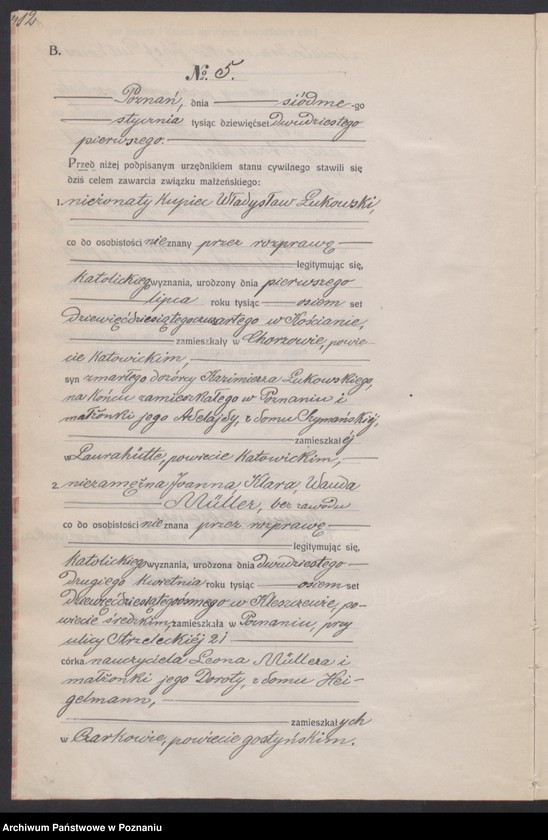 12
B.
No. 5.
Poznań, dnia siódme -go
stycznia tysiąc dziewięćset dwudziestego
pierwszego.
Przed niżej podpisanym urzędnikiem stanu cywilnego stawili się
dziś celem zawarcia związku małżeńskiego:
1. nieżonaty kupiec Władysław Łukowski,
co do osobistości nieznany przez rozprawę
legitymując się,
katolickiego wyznania, urodzony dnia pierwszego
lipca roku tysiąc osiem set
dziewięćdziesiątegoczwartego w Kościanie,
zamieszkały w Chorzowie, powie-
cie Katowickim,
syn zmarłego dozórcy Kazimierza Łukowskiego,
na końcu zamieszkałego w Poznaniu i
małżonki jego Adelajdy, z domu Szymańskiéj,
zamieszkałéj
w Laurahütte, powiecie Katowickim,
2. niezamężna Joanna Klara, Wanda
Müller, bez zawodu
co do osobistości nieznana przez rozprawę
legitymując się,
katolickiego wyznania, urodzona dnia dwudziestego
drugiego kwietnia roku tysiąc osiem set
dziewięćdziesiątegoósmego w Kleszczewie, po-
wiecie średzkim, zamieszkała w Poznaniu, przy
ulicy Strzeleckiéj 21
córka nauczyciela Leona Müllera i
małżonki jego Doroty, z domu Hei-
gelmann,
zamieszkałych
w Czarkowie, powiecie gostyńskim.
Archiwum Państwowe w Poznaniu